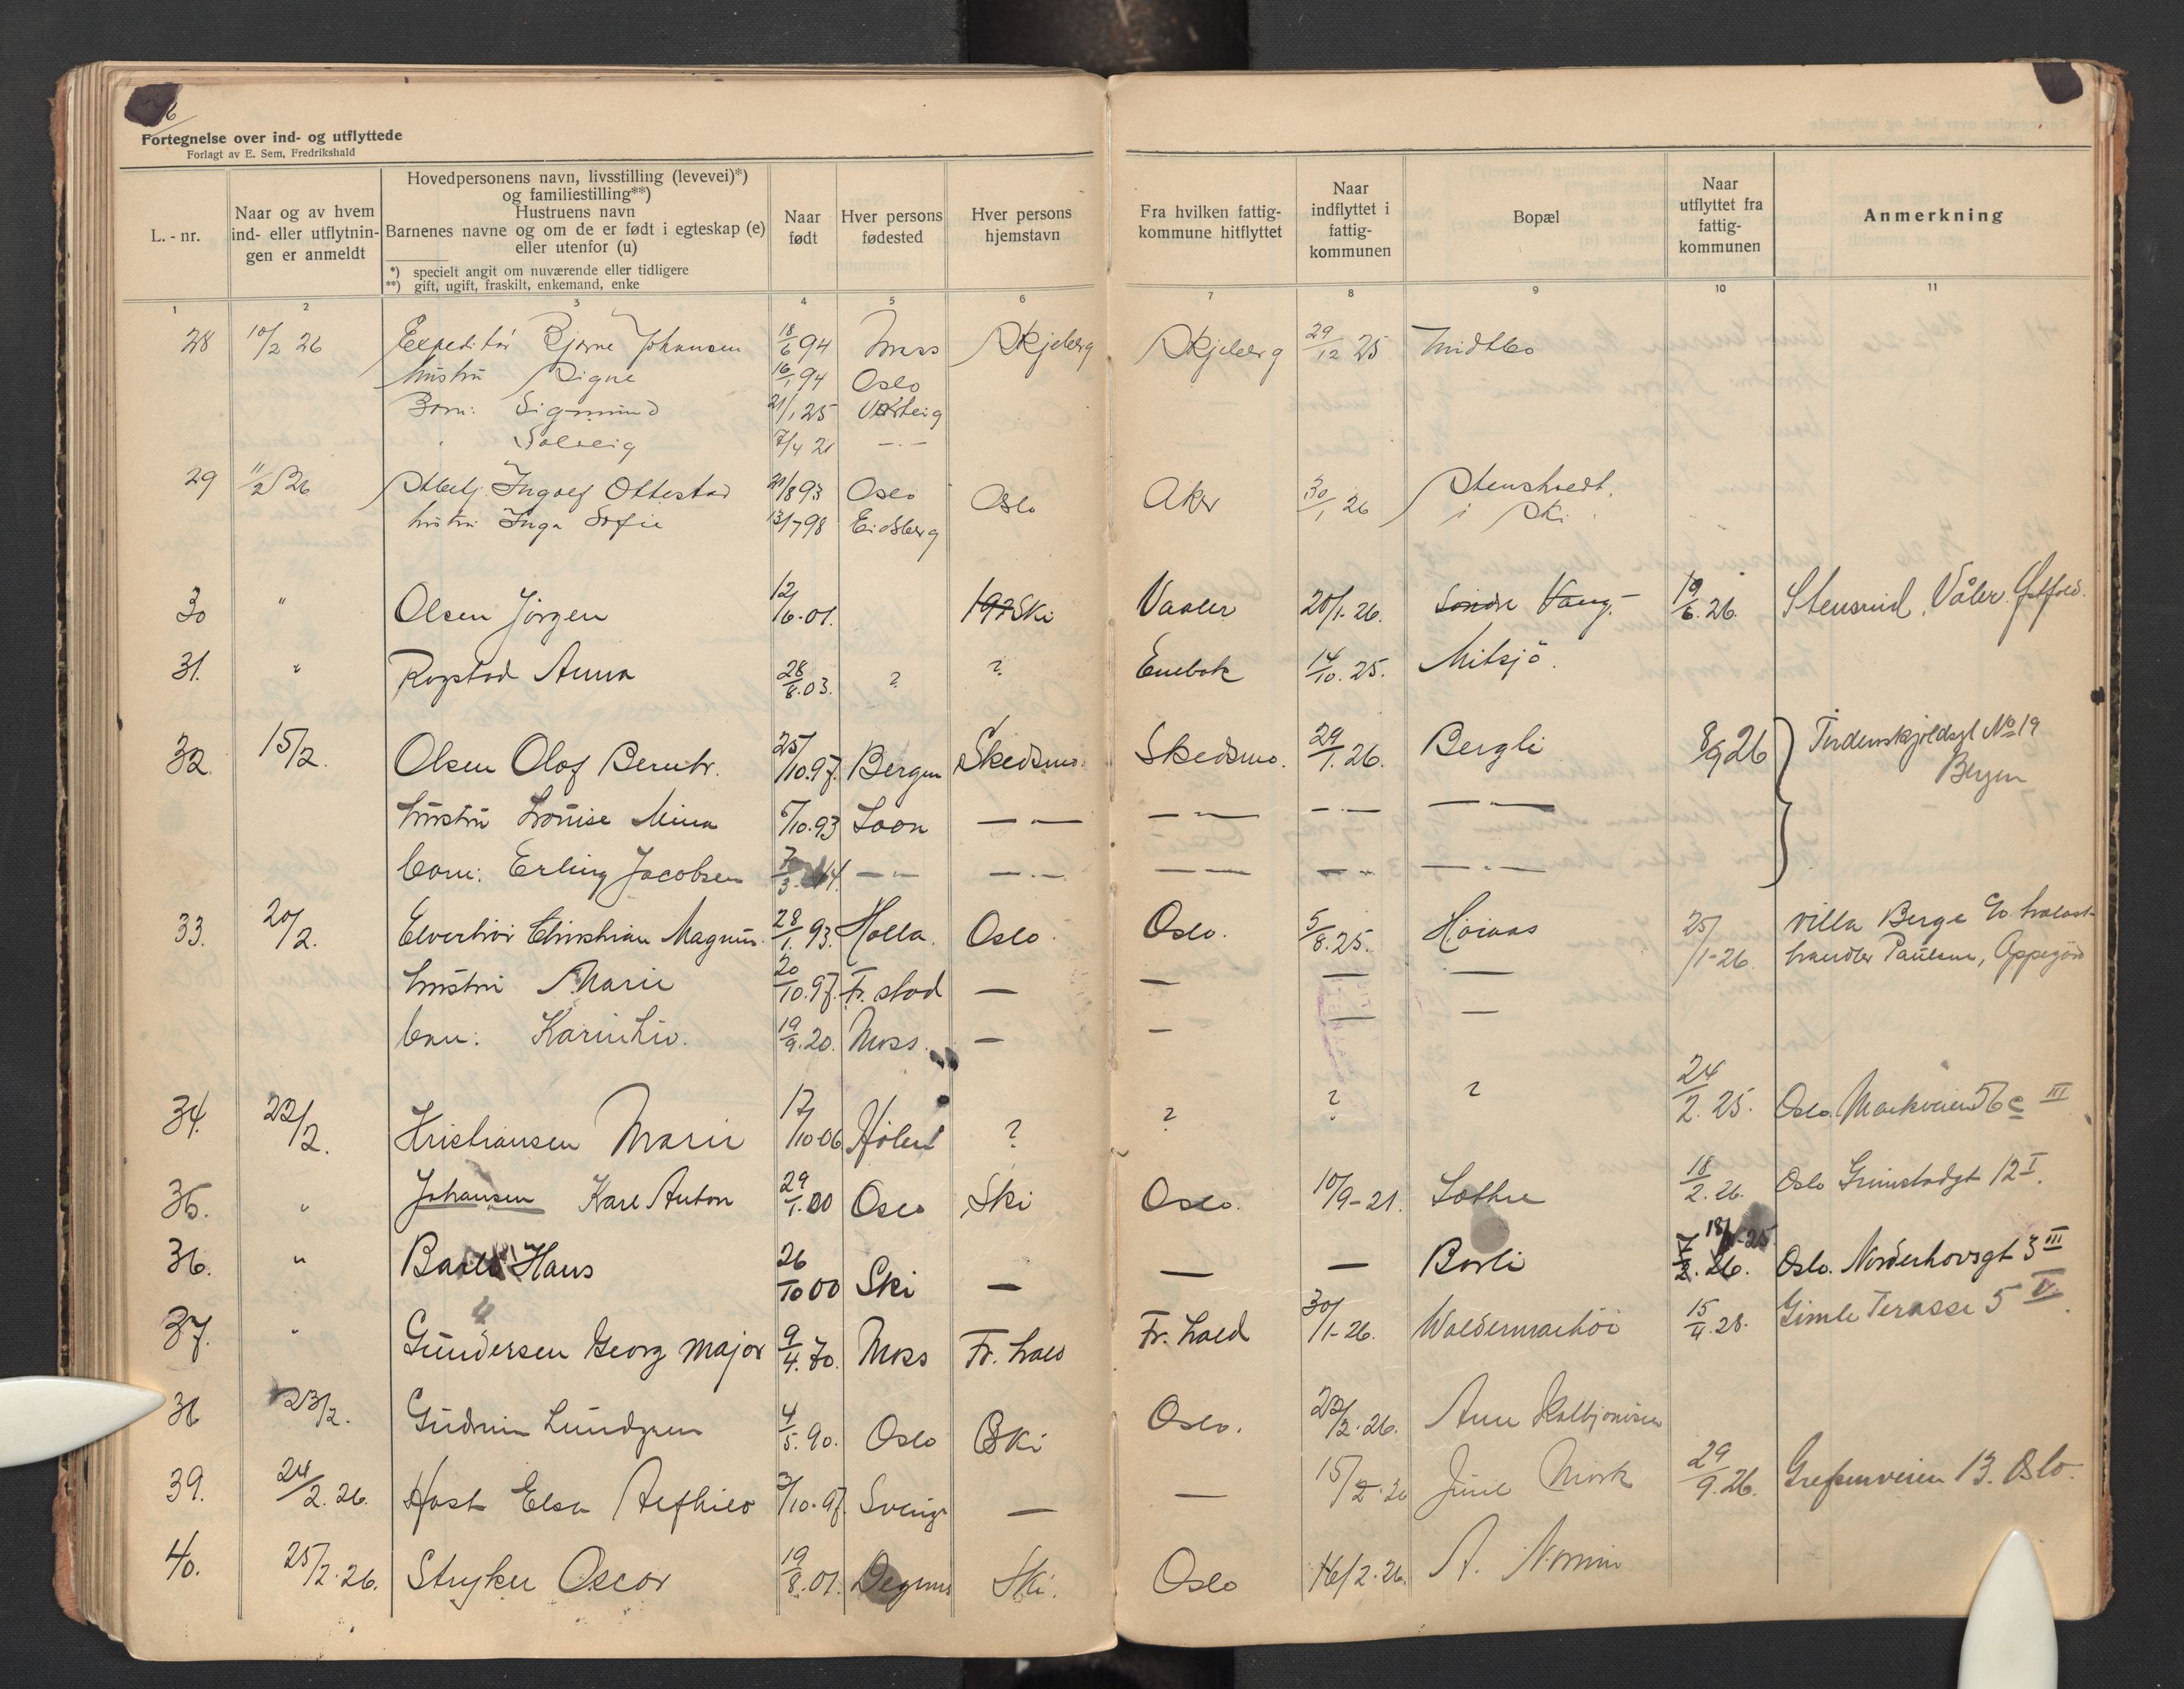 6
Fortegnelse over ind- og utflyttede
Forlagt av E. Sem, Fredrikshald
L. - nr.
Naar og av hvem
ind- eller utflytnin-
gen er anmeldt
Hovedpersonens navn, livsstilling (levevei)*)
og familiestilling**)
Hustruens navn
Barnenes navne og om de er født i egteskap (e)
eller utenfor (u)
*) specielt angit om nuværende eller tidligere
**) gift, ugift, fraskilt, enkemand, enke
Naar
født
Hver persons
fødested
Hver persons
hjemstavn
Fra hvilken fattig-
kommune hitflyttet
Naar
indflyttet i
fattig-
kommunen
Bopæl
Naar
utflyttet fra
fattig-
kommunen
Anmerkning
1 2 3 4 5 6 7 8 9 10 11
28 10/2 26 Expeditør Bjarne Johansen 18/6 94 Moss Skjeberg Skjeberg 29/12 25 Midtbo
hustru Signe 16/1 94 Oslo
Barn: Sigmund 21/1 25 Varteig
" Solveig 7/4 21 — " —
29 11/2 26 Ingolf Ottestad 21/8 93 Oslo Oslo Aker 30/1 26 Stenstvedt
hustru Inga Sofie 13/7 98 Eidsberg i Ski
30 " Olsen Jörgen 12/6.01. Ski Vaaler 20/1.26. Söndre Vang. 19/6.26. Stensrud, Våler Østfold.
31. " Rogstad Anna 28/8.03. ? ? Enebak 14/10.25. Mitsjö.
32. 15/2. Olsen Olof Bernh. 25/10.97. Bergen Skedsmo. Skedsmo. 29/1.26. Bergli 8/9 26 Tordenskjoldsgt No 19
Bergen
hustru Louise Mina 5/10.93 — " — — " — — " — — " —
barn: Erling Jacobsen 7/3. 14. — " — — " — — " — — " — — " —
33. 20/2. Christian Magnus. 28/1.93. Holla. Oslo. Oslo. 5/8.25. Höiaas 25/1-26. Villa Berge c/o
handler Paulsen, Oppegård
hustru Marie 20/10.97. Fr. stad — — — —
barn: Karin Liv. 19/9.20. Moss. — — — —
34. 22/2. Kristiansen Marie 17/10 06 Hölen ? ? ? ? 24/2.25. Oslo. Markveien 56 c III
35. " Johansen Karl Anton 29/1.00 Oslo Ski Oslo. 10/9-21. Sættre 18/2.26. Oslo Grimstadgt 12 I.
36. " Hans 26/10 00 Ski — — — Borli 18/ -25. Oslo. Norderhovsgt 3 III
37. " Gundersen Georg Major 9/4.70. Moss Fr. hald Fr. hald 30/1-26. Waldemarhöi 15/4.28. Gimle Terasse 5 V.
38 23/2. Gudrun Lundgren 4/5.90. Oslo Ski Oslo. 22/2.26. Kolbjørnsen
39. 24/2.26. Høst Elsa 3/10.97. Sverige — — 15/2.26 Juul Mork 29/9.26. Grefsenveien 13. Oslo.
40. 25/2.26. Stryker Oscar 19/8.01. Degernes Ski. Oslo 16/2.26.